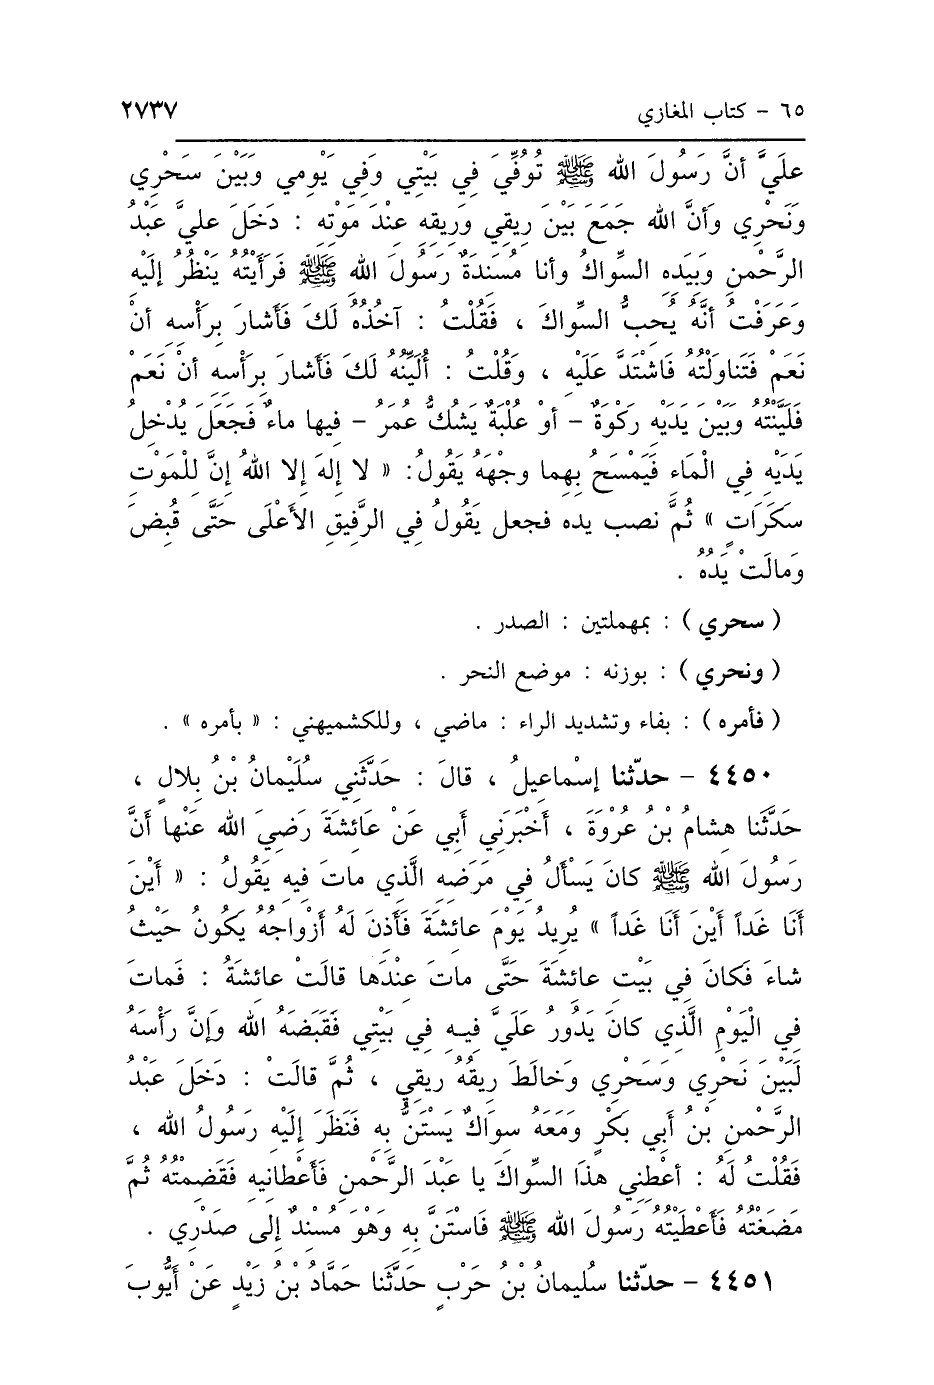 ٦٥ - كتاب المغازي ٢٧٣٧
علَيَّ أنَّ رَسُولَ الله ﷺ تُوُفِّيَ فِي بَيْتِي وَفِي يَوْمِي وَبَيْنَ سَحْرِي
وَنَحْرِي وَأنَّ الله جَمَعَ بَيْنَ رِيقِي وَرِيقِهِ عِنْدَ مَوْتِهِ : دَخَلَ عليَّ عَبْدُ
الرَّحْمنِ وَبِيَدِهِ السِّواكُ وأنا مُسْنِدَةٌ رَسُولَ الله ﷺ فَرَأيْتُهُ يَنْظُرُ إلَيْهِ
وعَرَفْتُ أنَّهُ يُحِبُّ السِّواكَ ، فَقُلْتُ : آخُذُهُ لَكَ فَأشارَ بِرَأْسِهِ أنْ
نَعَمْ فَتَناوَلْتُهُ فَاشْتَدَّ عَلَيْهِ ، وَقُلْتُ : أُلَيِّنُهُ لَكَ فَأشارَ بِرَأْسِهِ أنْ نَعَمْ
فَلَيَّنْتُهُ وَبَيْنَ يَدَيْهِ رَكْوَةٌ - أوْ عُلْبَةٌ يَشُكُّ عُمَرُ - فِيها ماءٌ فَجَعَلَ يُدْخِلُ
يَدَيْهِ فِي الْمَاءِ فَيَمْسَحُ بِهِما وجْهَهُ يَقُولُ: « لا إلهَ إلا اللهُ إنَّ لِلْمَوْتِ
سكَرَاتٍ » ثُمَّ نصب يده فجعل يَقُولُ فِي الرَّفِيقِ الأَعْلَى حَتَّى قُبِضَ
وَمالَتْ يَدُهُ .
( سحري ) : بمهملتين : الصدر .
( ونحري ) : بوزنه : موضع النحر .
( فأمره ) : بفاء وتشديد الراء : ماضي ، وللكشميهني : « بأمره » .
٤٤٥٠ - حدّثنا إسْماعِيلُ ، قالَ : حَدَّثَنِي سُلَيْمانُ بْنُ بِلالٍ ،
حَدَّثَنا هِشامُ بْنُ عُرْوَةَ ، أَخْبَرَنِي أبي عَنْ عَائِشَةَ رَضِيَ الله عَنْها أنَّ
رَسُولَ الله ﷺ كانَ يَسْألُ فِي مَرَضِهِ الَّذِي ماتَ فِيهِ يَقُولُ : « أيْنَ
أنَا غَداً أيْنَ أنَا غَداً » يُرِيدُ يَوْمَ عائِشَةَ فَأذِنَ لَهُ أزْواجُهُ يَكُونُ حَيْثُ
شاءَ فَكانَ فِي بَيْتِ عائِشَةَ حَتَّى ماتَ عِنْدَها قالَتْ عائِشَةُ : فَماتَ
فِي الْيَوْمِ الَّذِي كانَ يَدُورُ عَلَيَّ فِيهِ فِي بَيْتِي فَقَبَضَهُ الله وَإنَّ رَأْسَهُ
لَبَيْنَ نَحْرِي وَسَحْرِي وَخالَطَ رِيقُهُ رِيقِي ، ثُمَّ قالَتْ : دَخَلَ عَبْدُ
الرَّحْمنِ بْنُ أبِي بَكْرٍ وَمَعَهُ سِواكٌ يَسْتَنُّ بِهِ فَنَظَرَ إلَيْهِ رَسُولُ الله ،
فَقُلْتُ لَهُ : أعْطِنِي هذَا السِّواكَ يا عَبْدَ الرَّحْمنِ فَأَعْطانِيهِ فَقَضِمْتُهُ ثُمَّ
مَضَغْتُهُ فَأعْطَيْتُهُ رَسُولَ الله ﷺ فَاسْتَنَّ بِهِ وَهْوَ مُسْنِدٌ إلى صَدْرِي .
٤٤٥١ - حدّثنا سُلَيمانُ بْنُ حَرْبٍ حَدَّثَنا حَمَّادُ بْنُ زَيْدٍ عَنْ أيُّوبَ